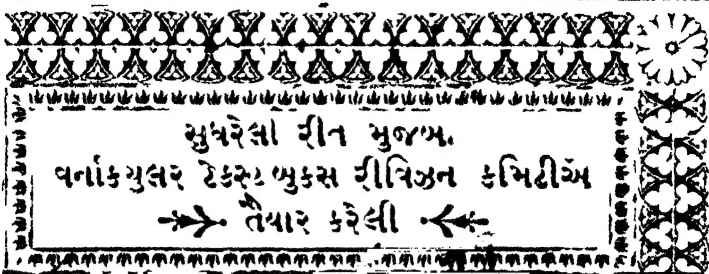 સુધરેલી રીત મુજબ.
વર્નાક્યુલર ટેકસ્ટ બુકસ રીવિઝન કમિટીએ
તૈયાર કરેલી